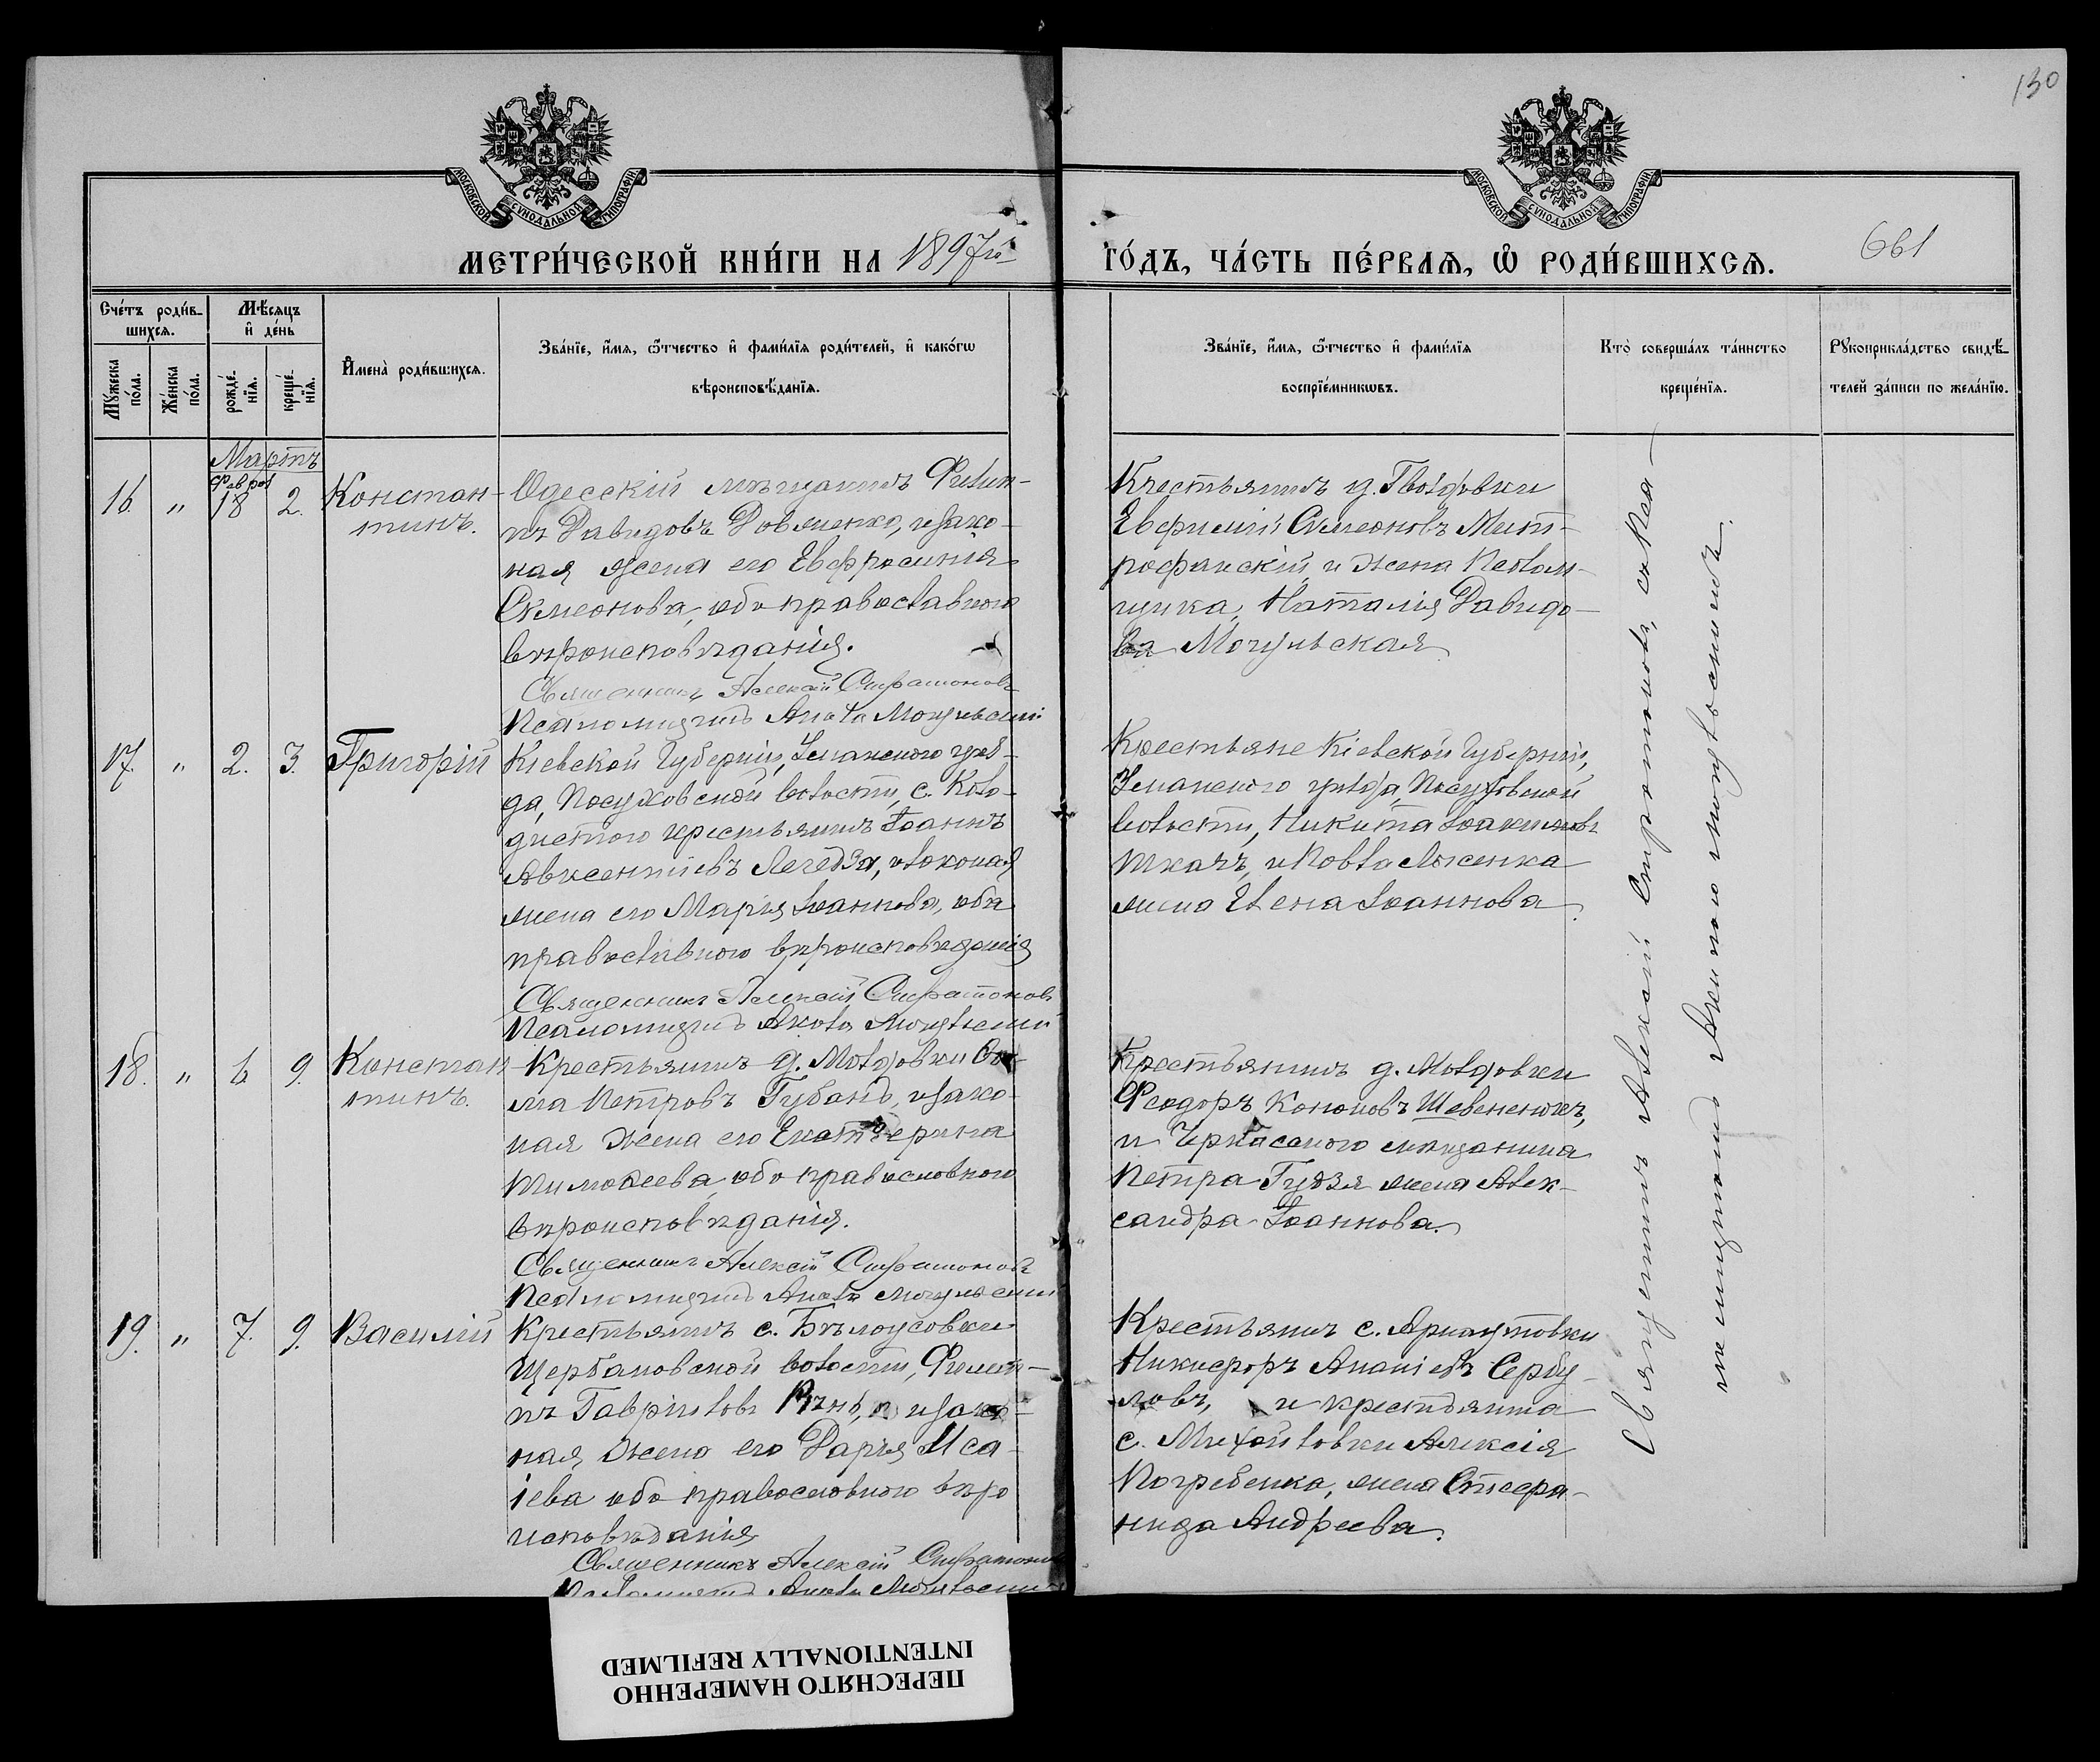 130
МОСКОВСКОЙ СѴНОДАЛЬНОЙ ТИПОГРАФІИ
МОСКОВСКОЙ СѴНОДАЛЬНОЙ ТИПОГРАФІИ
МЕТРИ́ЧЕСКОЙ КНИ́ГИ НА 1897й
ГО́ДЪ, ЧА́СТЬ ПЕ́РВАѦ, Ѡ҆ РОДИ́ВШИХСѦ.
661
Сче́тъ роди́в-
шихсѧ.
Мѣ́сѧцъ
и҆ де́нь
Мꙋ́жеска
по́ла.
Же́нска
по́ла.
рожде́-
нїѧ.
креще́-
нїѧ.
И҆мена̀ роди́вшихсѧ.
Зва́нїе, и҆́мѧ, ѻ҆́тчество и҆ фами́лїѧ роди́телей, и҆ како́гѡ
вѣроисповѣ́данїѧ.
Зва́нїе, и҆́мѧ, ѻ҆́тчество и҆ фами́лїѧ
воспрїе́мникѡвъ.
Кто̀ соверша́лъ та́инство
креще́нїѧ.
Рꙋкоприкла́дство свидѣ́-
телей за́писи по жела́нїю.
Мартъ
16. " Феврал 18 2. Констан-
тинъ.
Одесскій мѣщанинъ Филип-
пъ Давидовъ Довженко, и зако-
ная жена его Евфросинія
Симеонова, оба православнаго
вѣроисповѣданія.
Священникъ Алексій Стратоновъ
Псаломщикъ Могульскій
Крестьянинъ д.
Евфимій Симеоновъ Мит-
рофанскій, и жена Псалом-
щика, Наталія Давидо-
ва Могульская
17. " 2. 3. Григорій
Кіевской Губерніи, Уманского уѣз-
да, Посуховской волости, с. Коло-
дистого крестьянинъ Іоаннъ
Авксентіевъ Легедза, и законая
жена его Марія Іоаннова, оба
православного вѣроисповѣданія
Священникъ Алексій Стратоновъ
Псаломщикъ Могульскій
Крестьяне Кіевской Губерніи,
Уманского уѣзда, Посуховской
волости, Никита Іоакимовъ
Ткачъ, и Павла
жена Елена Іоаннова.
18. " 6 9. Констан
тинъ.
Крестьянинъ д. Молдовки
ма Петровъ Губанъ, и зако-
ная жена его Екатерина
Тимоѳеева, оба православного
вѣроисповѣданія.
Священникъ Алексій Стратоновъ
Псаломщикъ Могульскій
Крестьянинъ д. Молдовки
Феодоръ Кононовъ
и Черкасского мѣщанина
Петра жена Алек-
сандра Іоаннова.
19. " 7. 9. Василій
Крестьянинъ с. Бѣлоусовки
Щербановской волости, Филип-
пъ Гавріиловъ и зако-
ная жена его Дарія Иса-
іева оба православного вѣро
исповѣданія
Священникъ Алексій Стратоновъ
Псаломщикъ Могульскій
Крестьянинъ с. Арнаутовки
Никифоръ Ананіевъ Сербу-
ловъ, и крестьянина
с. Михайловки Алексія
Погребенка, жена Стефа-
нида Андреева.
Священникъ Алексій Стратоновъ, съ Пса-
ломщикомъ Могульскимъ.
ПЕРЕСНЯТО НАМЕРЕННО
INTENTIONALLY REFILMED